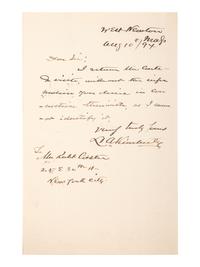 West Newton
Mass
Aug 10/94
Dear Sir;
I return the Carte
de visite, without the infor
mation you desire in con
nection therewith, as I can
not identify it.
Very truly yours
L A Kimberly
To
Mr
New York City